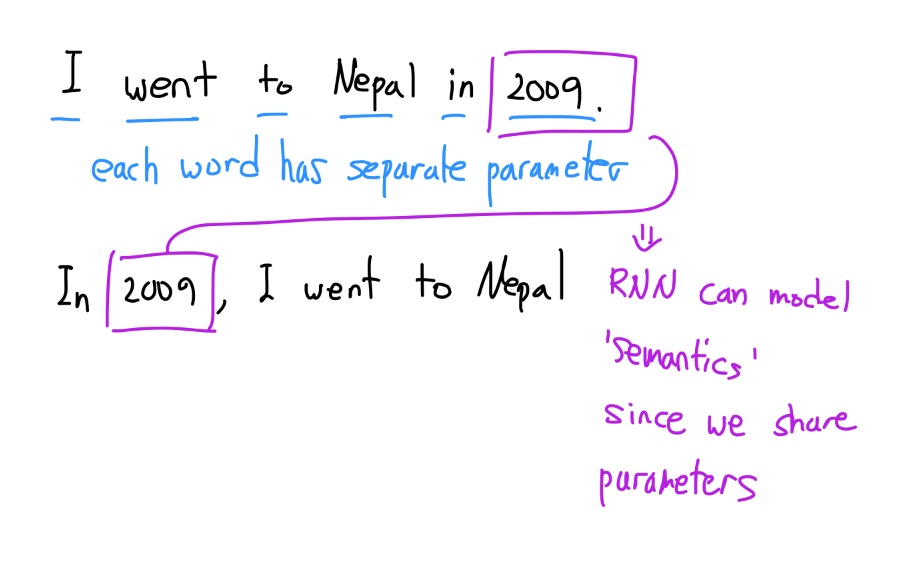 I went to Nepal in 2009.
each word has separate parameter
In 2009, I went to Nepal
⇓
RNN can model
'semantics'
since we share
parameters